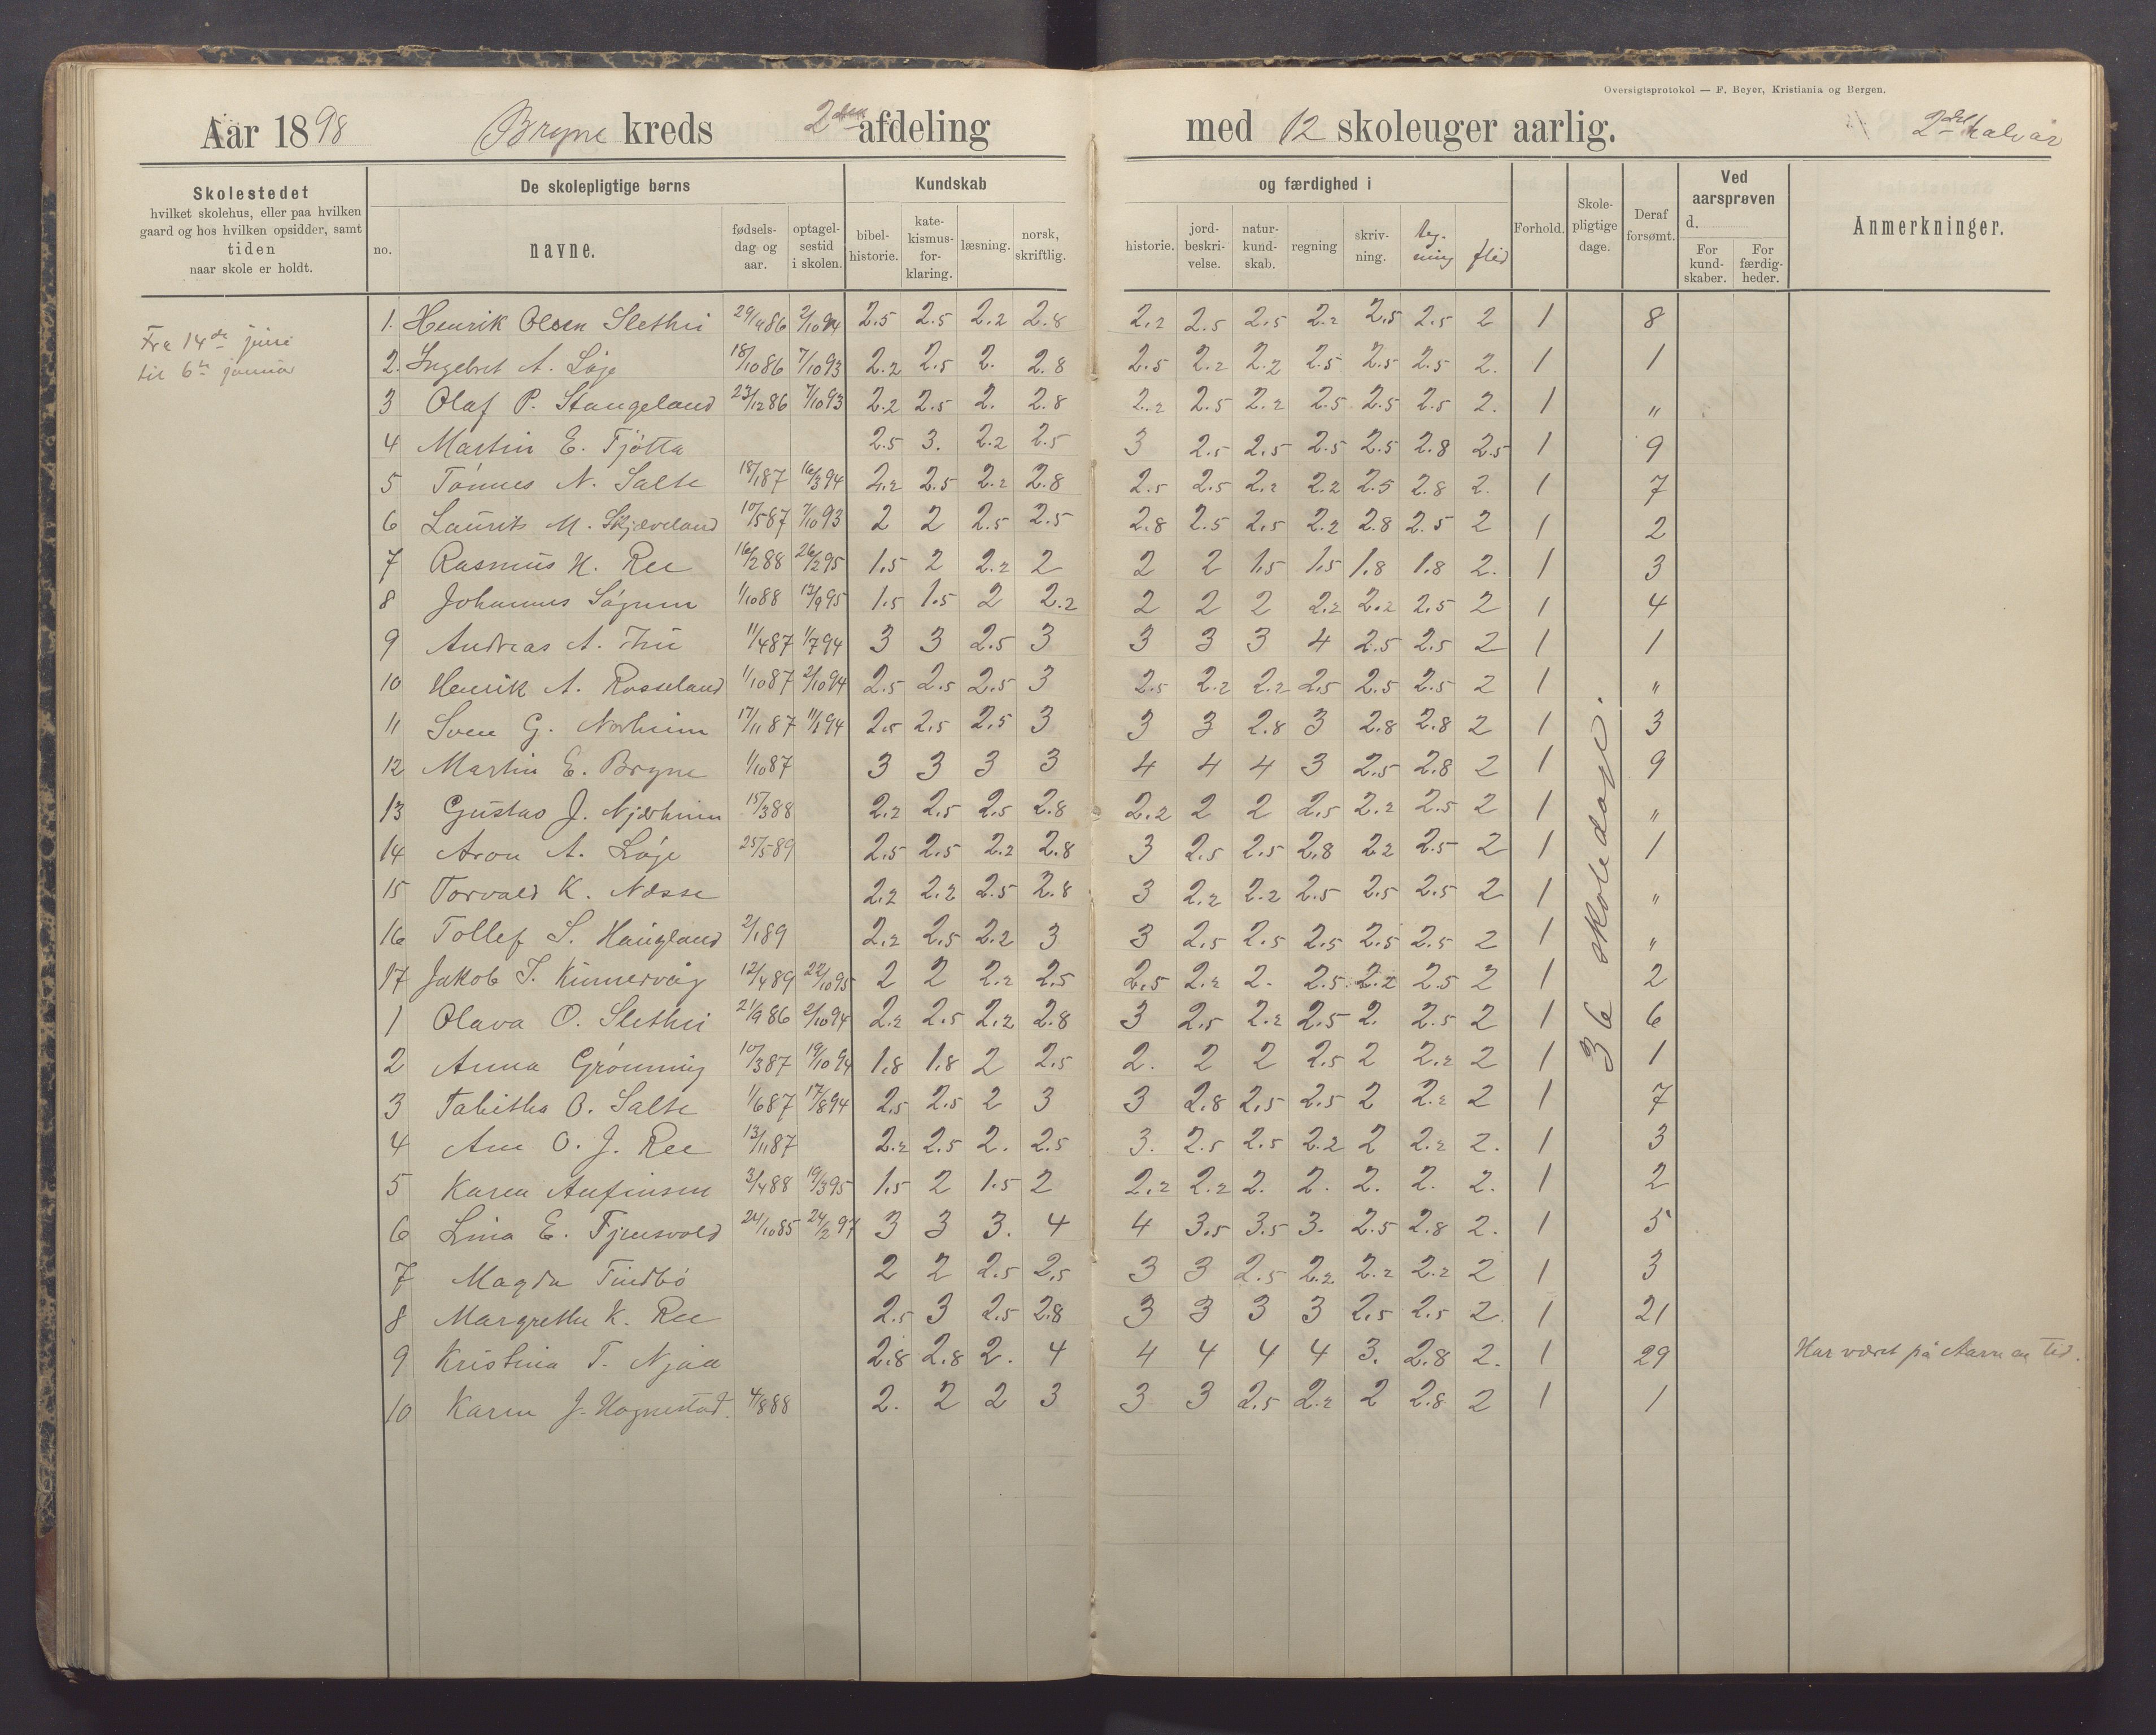 Oversigtsprotokol — F. Beyer, Kristiania og Bergen.
Aar 1898 Bryne kreds 2den afdeling med 12 skoleuger aarlig. 2det halvår
Skolestedet hvilket skolehus, eller paa hvilken gaard og hos hvilken opsidder, samt tiden naar skole er holdt.
De skolepligtige børns
no. navne. fødselsdag og aar. optagelsestid i skolen.
Kundskab og færdighed i
bibelhistorie. katekismusforklaring. læsning. norsk, skriftlig. historie. jordbeskrivelse. naturkundskab. regning skrivning. tegning flid
Forhold. Skolepligtige dage. Deraf forsømt.
Ved aarsprøven d.
For kundskaber. For færdigheder.
Anmerkninger.
Fra 14de juni
til 6te januar
1. Henrik Olsen Slethei 29/9 86 2/10 94 2.5 2.5 2.2 2.8 2.2 2.5 2.5 2.2 2.5 2.5 2 1 8
2. Ingebret A. Löge 18/10 86 7/10 93 2.2 2.5 2. 2.8 2.5 2.2 2.2 2.5 2.5 2.5 2. 1 1
3 Olaf P. Stangeland 23/12 86 7/10 93 2.2 2.5 2. 2.8 2.2 2.5 2.2 2.5 2.5 2.5 2. 1 "
4 Martin E. Tjötta 2.5 3. 2.2 2.5 3 2.5 2.5 2.5 2.5 2.8 2.5 1 9
5 Tönnes N. Salte 18/1 87 16/3 94 2.2 2.5 2.2 2.8 2.5 2.5 2.2 2.2 2.5 2.8 2. 1 7
6 Laurits M. Skjæveland 10/5 87 7/10 93 2 2 2.5 2.5 2.8 2.5 2.5 2.2 2.8 2.5 2 1 2
7 Rasmus H. Ree 16/2 88 26/2 95 1.5 2 2.2 2 2 2 1.5 1.5 1.8 1.8 2. 1 3
8 Johannes Sögnen 1/10 88 12/9 95 1.5 1.5 2 2.2 2 2 2 2.2 2.2 2.5 2 1 4
9 Andreas A. Thu 11/4 87 1/7 94 3 3 2.5 3 3 3 3 4 2.5 2.5 2 1 1
10 Henrik A. Rosseland 1/10 87 2/10 94 2.5 2.5 2.5 3 2.5 2.2 2.2 2.5 2.5 2.5 2 1 "
11 Sven G. Norheim 17/11 87 11/1 94 2.5 2.5 2.5 3 3 3 2.8 3 2.8 2.8 2 1 3
12 Martin E. Bryne 1/10 87 3 3 3 3 4 4 4 3 2.5 2.8 2 1 9
13 Gustav J. Njærheim 15/3 88 2.2 2.5 2.5 2.8 2.2 2 2 2.5 2.2 2.5 2 1 "
14 Aron A. Löge 25/5 89 2.5 2.5 2.2 2.8 3 2.5 2.5 2.8 2.2 2.5 2 1 1
15 Torvald K. Næsse 2.2 2.2 2.5 2.8 3 2.2 2.2 2.5 2.5 2.5 2 1 "
16 Tollef S. Haugland 2/1 89 2.2 2.5 2.2 3 3 2.5 2.5 2.5 2.5 2.5 2 1 "
17 Jakob T. Kinnervåg 12/4 89 22/10 95 2 2 2.2 2.5 2.5 2.2 2. 2.5 2.2 2.5 2 1 2
1 Olava O. Slethei 21/9 86 2/10 94 2.2 2.5 2.2 2.8 3 2.5 2.2 2.5 2. 2.5 2 1 6
2 Anna Grönning 10/3 87 19/10 94 1.8 1.8 2 2.5 2. 2 2 2.5 2 2.2 2 1 1
3 Tabitha O. Salte 1/6 87 17/8 94 2.5 2.5 2 3 3 2.8 2.5 2.5 2 2.2 2 1 7
4 Ane O. J. Ree 13/11 87 2.2 2.5 2. 2.5 3. 2.5 2.5 2.2 2 2.2 2. 1 3
5 Karen Anfinsen 3/4 88 19/3 95 1.5 2 1.5 2 2.2 2.2 2. 2. 2. 2. 2. 1 2
6 Lina E. Tjensvold 24/10 85 24/2 97 3 3 3. 4 4 3.5 3.5 3. 2.5 2.8 2. 1 5
7 Magda Tindbö 2 2 2.5 2.5 3 3 2.5 2.2 2.2 2.2 2 1 3
8 Margrethe K. Ree 2.5 3 2.5 2.8 3 3 3 3 2.5 2.5 2. 1 21
9 Kristina T. Njaa 2.8 2.8 2. 4 4 4 4 4 3. 2.8 2. 1 29 Har været på en Tid.
10 Karen J. Hognestad. 4/8 88 2. 2 2 3 3 3 2.5 2.2 2 2.8 2 1 1
36 skoledage.